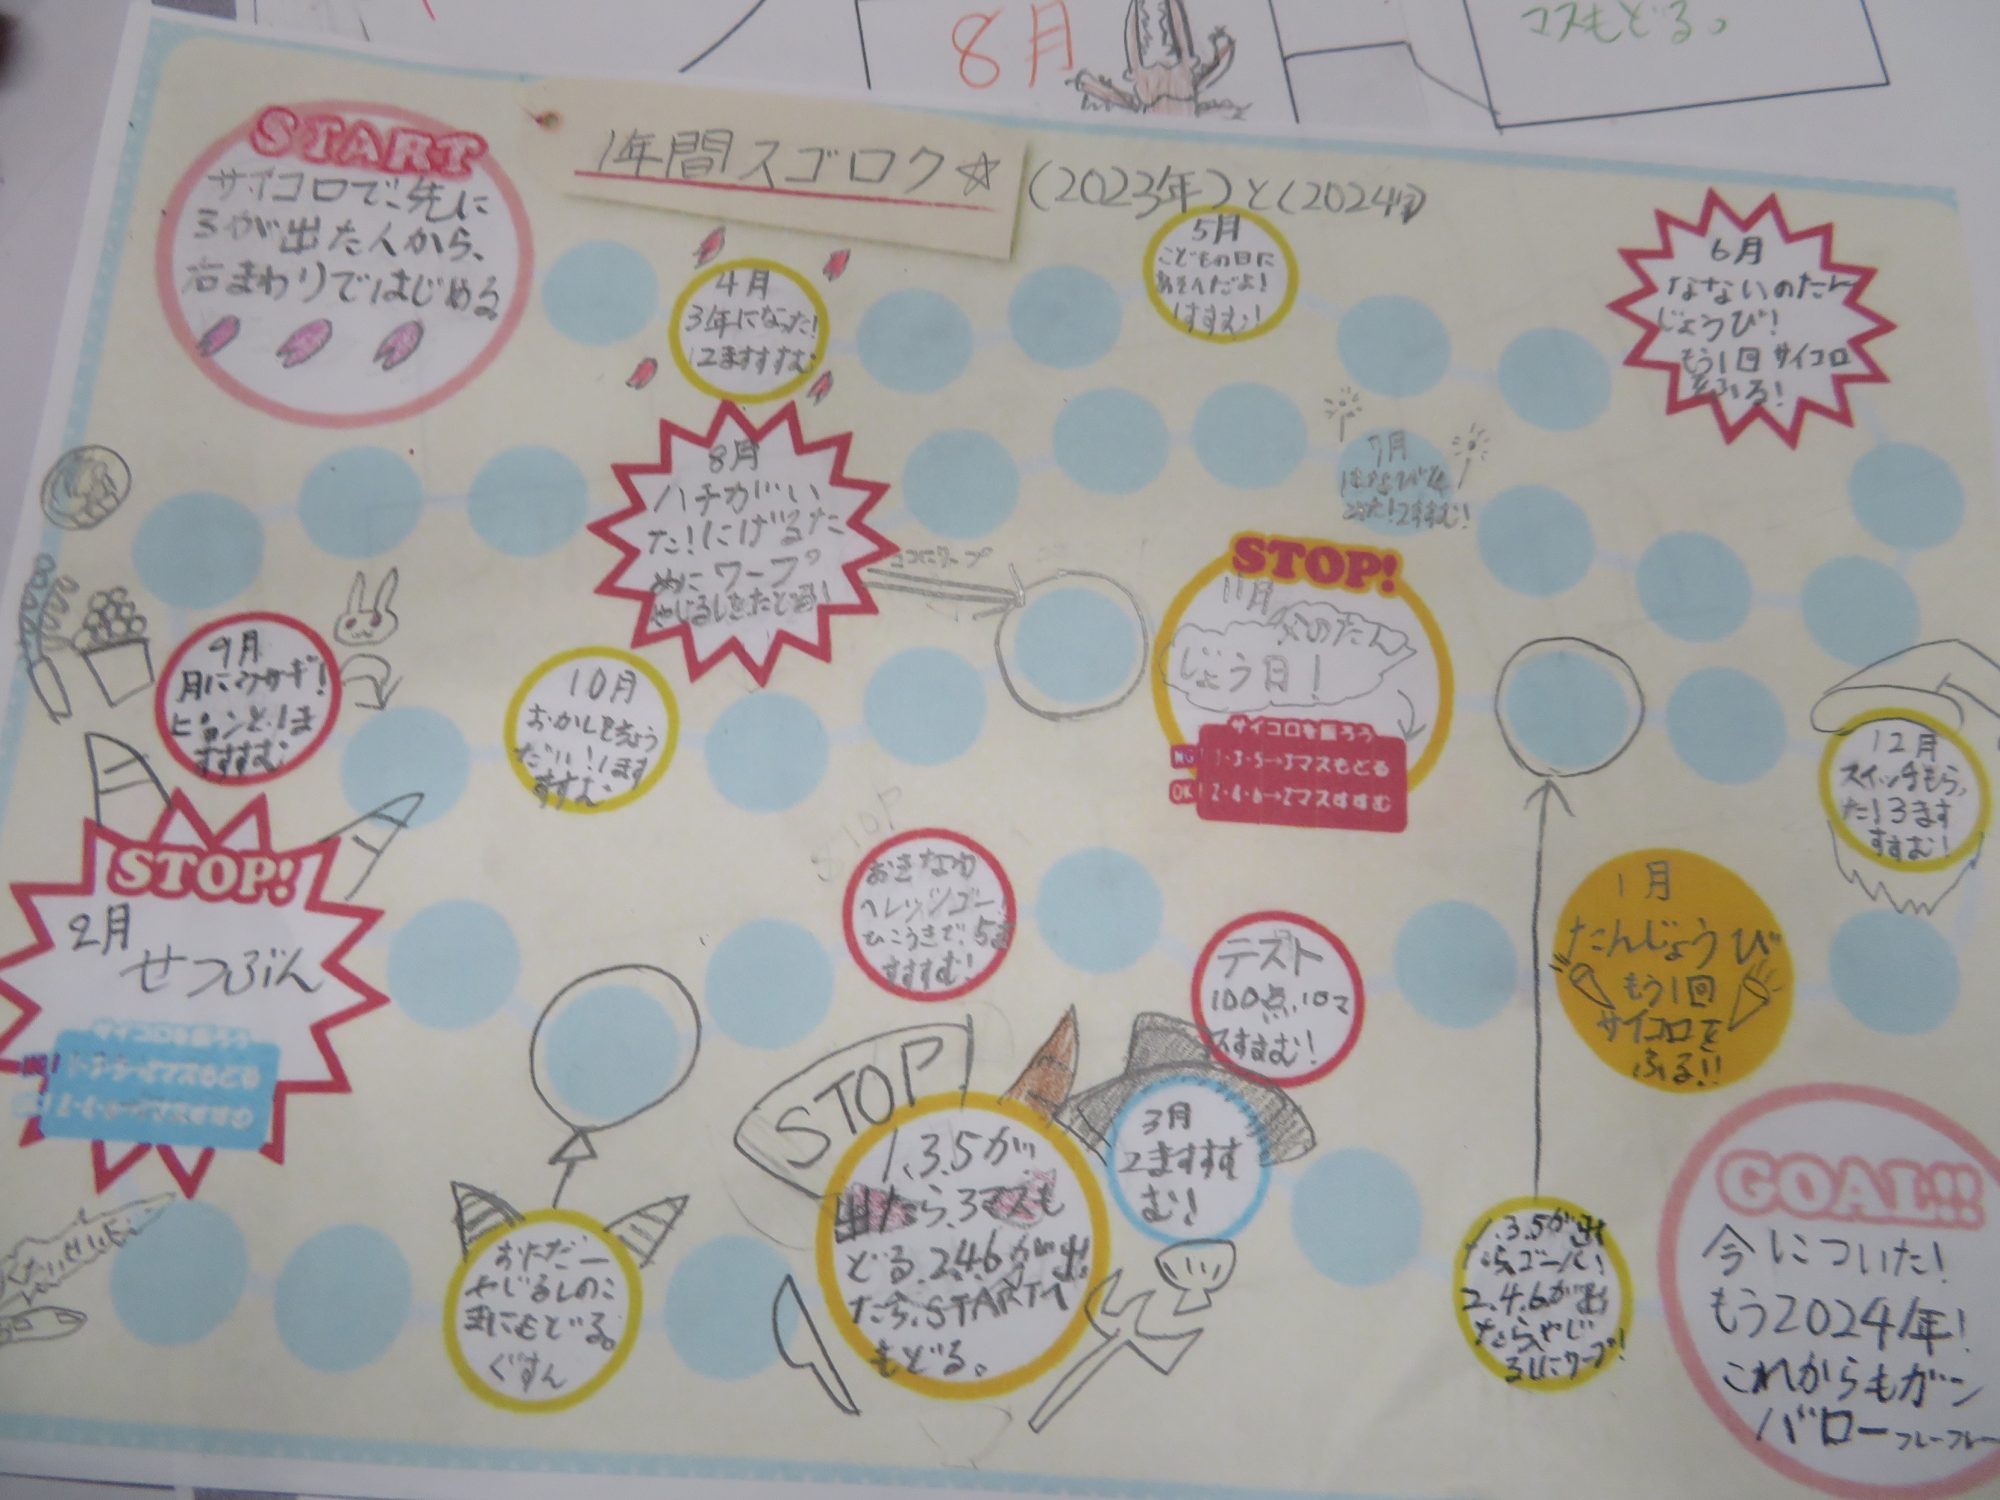 8月
マスもどる。
1年間スゴロク☆
(2023年)と(2024年)
START
サイコロで先に
3が出た人から、
右まわりではじめる
4月
3年になった!
2ますすすむ
5月
こどもの日に
あそんだよ!
1すすむ!
6月
なないのたん
じょうび!
もう1回サイコロ
をふる!
7月
2すすむ!
8月
ハチがい
た!にげるた
めにワープ
やじるしをたどる!
ココにワープ
9月
月にウサギ!
ピョンと1ま
すすすむ
10月
おかしをちょう
だい!1ます
すすむ
STOP!
11月
父のたん
じょう日!
サイコロを振ろう
NG! 1・3・5→3マスもどる
OK! 2・4・6→2マスすすむ
12月
スイッチもらっ
た!3ます
すすむ!
1月
たんじょうび
もう1回
サイコロを
ふる!!
テスト
100点、10マ
スすすむ!
STOP
おきなわ
へレッツゴー!
ひこうきで、5ま
すすすむ!
STOP!
2月
せつぶん
サイコロを振ろう
おにだー
やじるしのこ
まにもどる。
ぐすん
STOP
1、3、5が
出たら、3マスも
どる、2、4、6が出
たら、STARTへ
もどる。
3月
2ますすす
む!
1、3、5が出た
らゴール!
2、4、6が出
たら、やじ
るしにワープ!
GOAL!!
今についた!
もう2024年!
これからもガン
バローフレーフレー